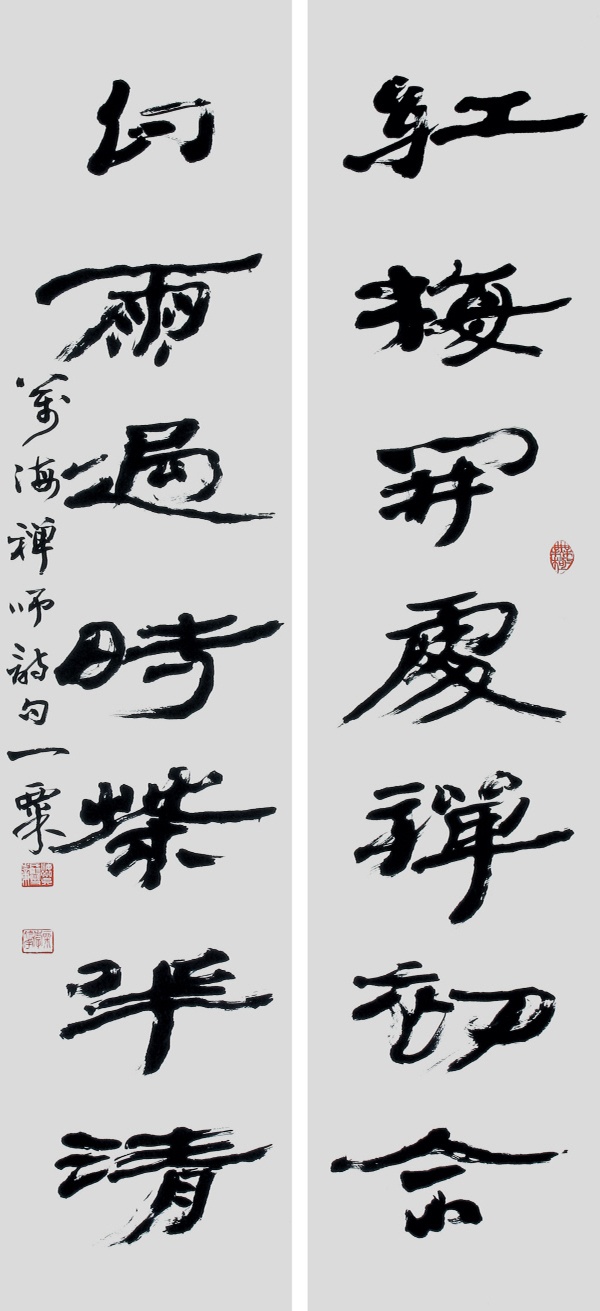 紅梅開處禪初合
白雨過時茶半清
萬海禪師詩句一粟